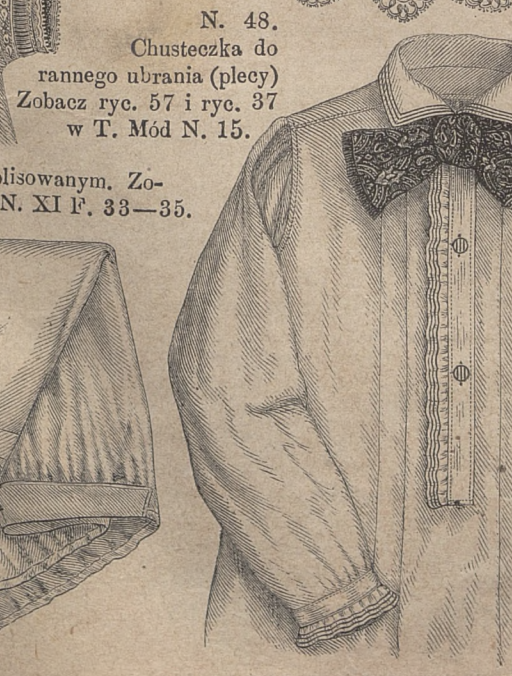 N. 48.
Chusteczka do
rannego ubrania (plecy)
Zobacz ryc. 57 i ryc. 37
w T. Mód N. 15.
lisowanym. Zo-
N. XI F. 33—35.